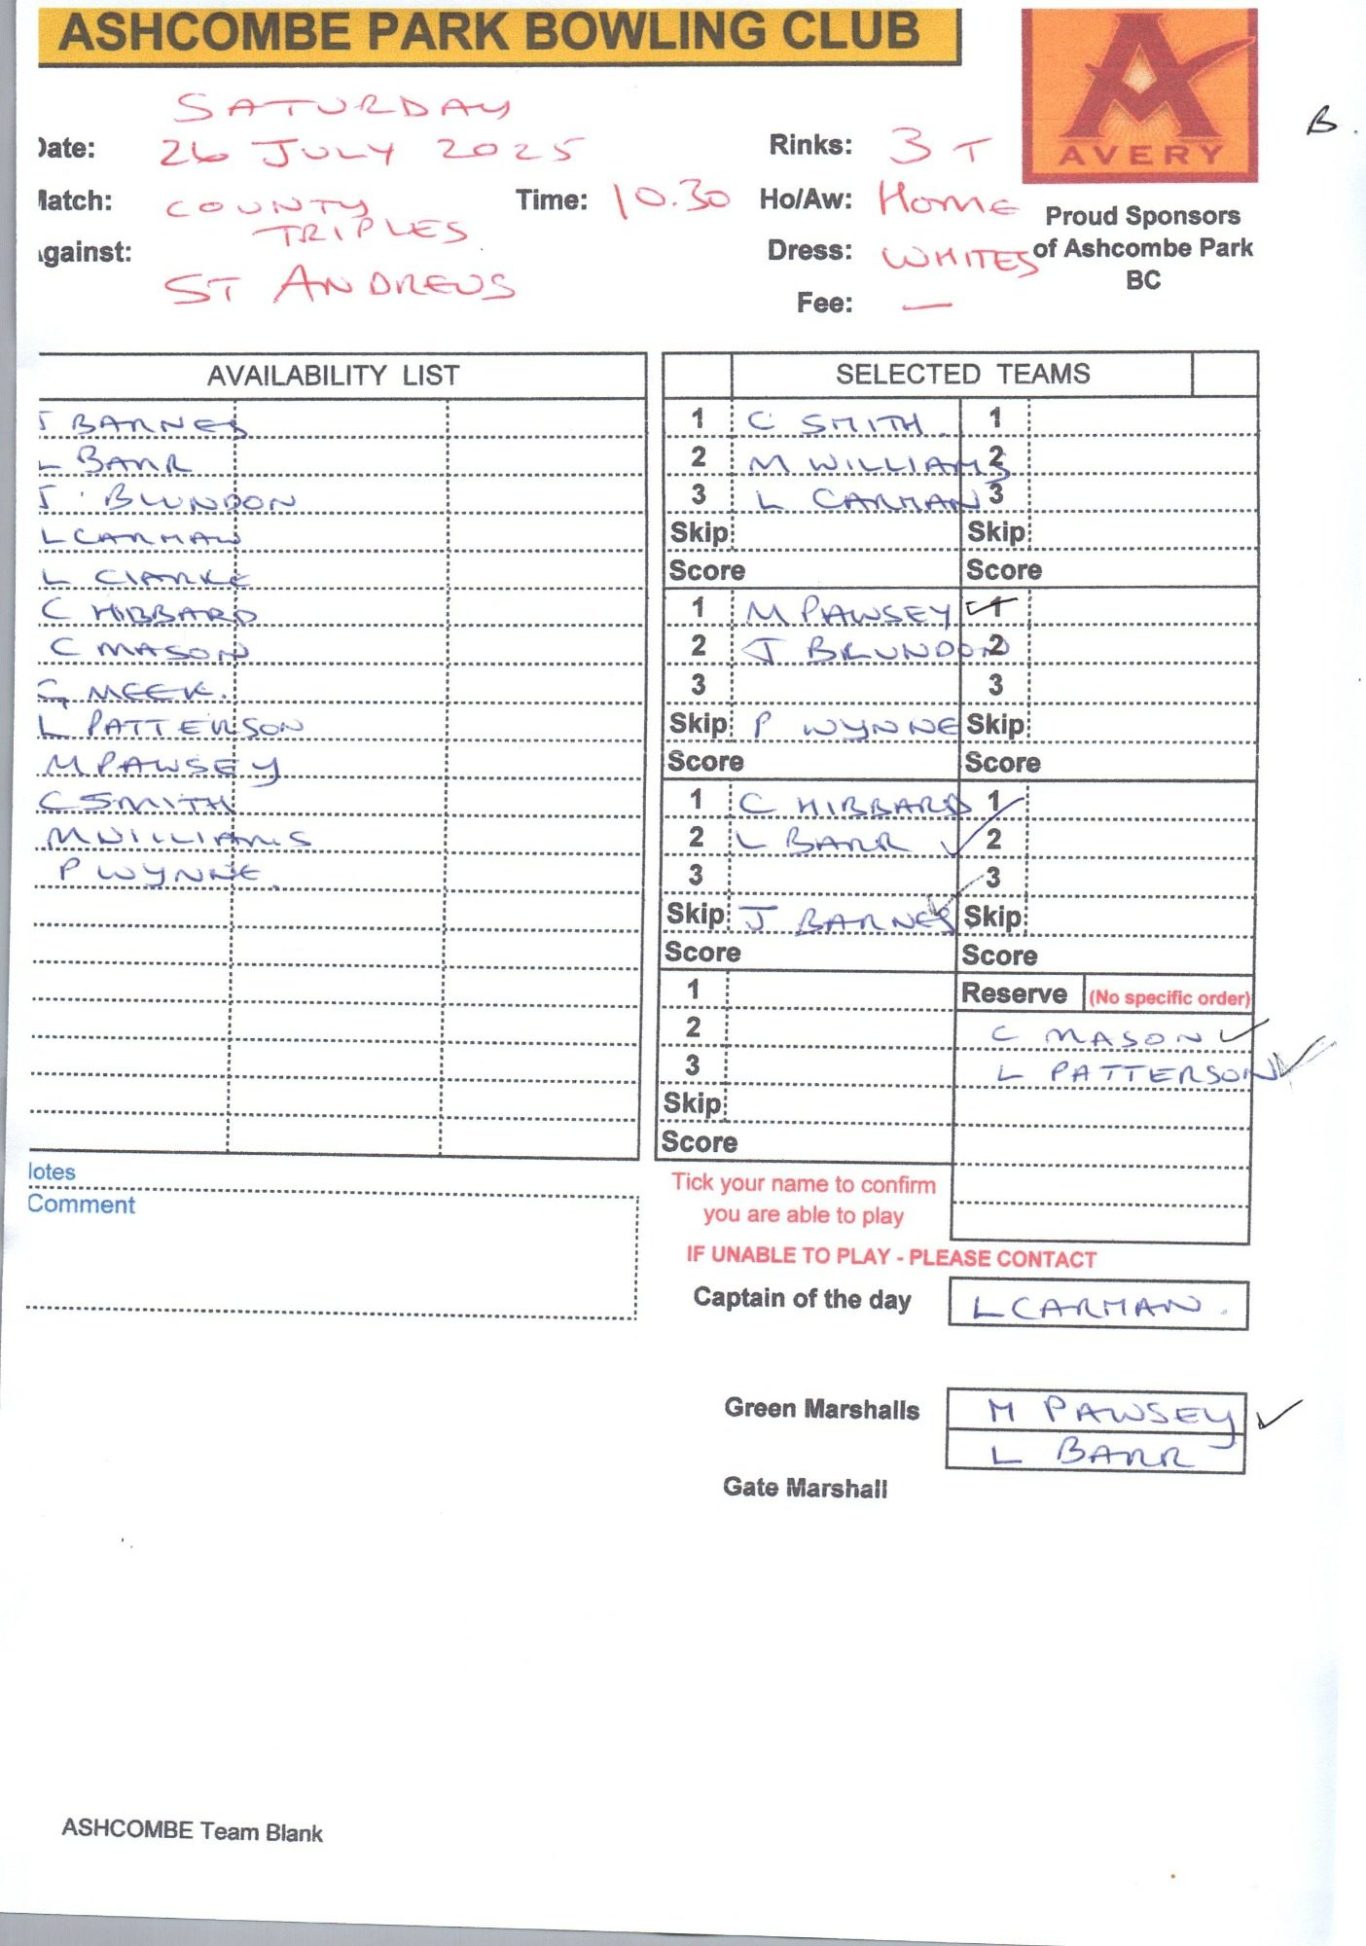 ASHCOMBE PARK BOWLING CLUB
AVERY
B.
SATURDAY
Date: 26 JULY 2025
Rinks: 3 T
Match: COUNTY TRIPLES
Time: 10.30
Ho/Aw: HOME
Against: ST ANDREWS
Dress: WHITES
Fee: —
Proud Sponsors
of Ashcombe Park
BC
AVAILABILITY LIST
J BARNES
L BARR
J BLUNDON
L CARMAN
L CLARKE
C HIBBARD
C MASON
G MEEK.
L PATTERSON
M PAWSEY
C SMITH
M WILLIAMS
P WYNNE.
Notes
Comment
SELECTED TEAMS
1 C SMITH 1
2 M WILLIAMS 2
3 L CARMAN 3
Skip Skip
Score Score
1 M PAWSEY ✓ 1
2 J BRUNDON 2
3 3
Skip P WYNNE Skip
Score Score
1 C HIBBARD 1
2 L BARR ✓ 2
3 3
Skip J BARNES ✓ Skip
Score Score
1
2
3
Skip
Score
Reserve (No specific order)
C MASON ✓
L PATTERSON ✓
Tick your name to confirm
you are able to play
IF UNABLE TO PLAY - PLEASE CONTACT
Captain of the day L CARMAN.
Green Marshalls M PAWSEY ✓
L BARR
Gate Marshall
ASHCOMBE Team Blank